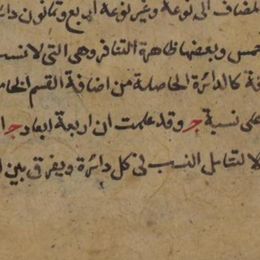 المضاف الى نوعه وغير نوعه اربع وثمانون دائ
خمس وبعضها ظاهرة التنافر وهى التى لا نسب
فة كالدائرة الحاصلة من اضافة القسم الخام
على نسبة ج وقد علمت ان اربعة ابعاد ج ا
لا لتتامل النسب فى كل دائرة ويفرق بين ا